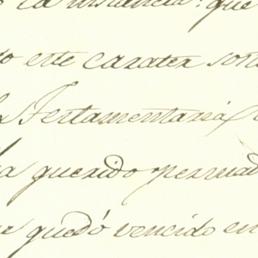 la instancia: que
o este carater son
Testamentaria
ha querido persuad
e quedó vencido en